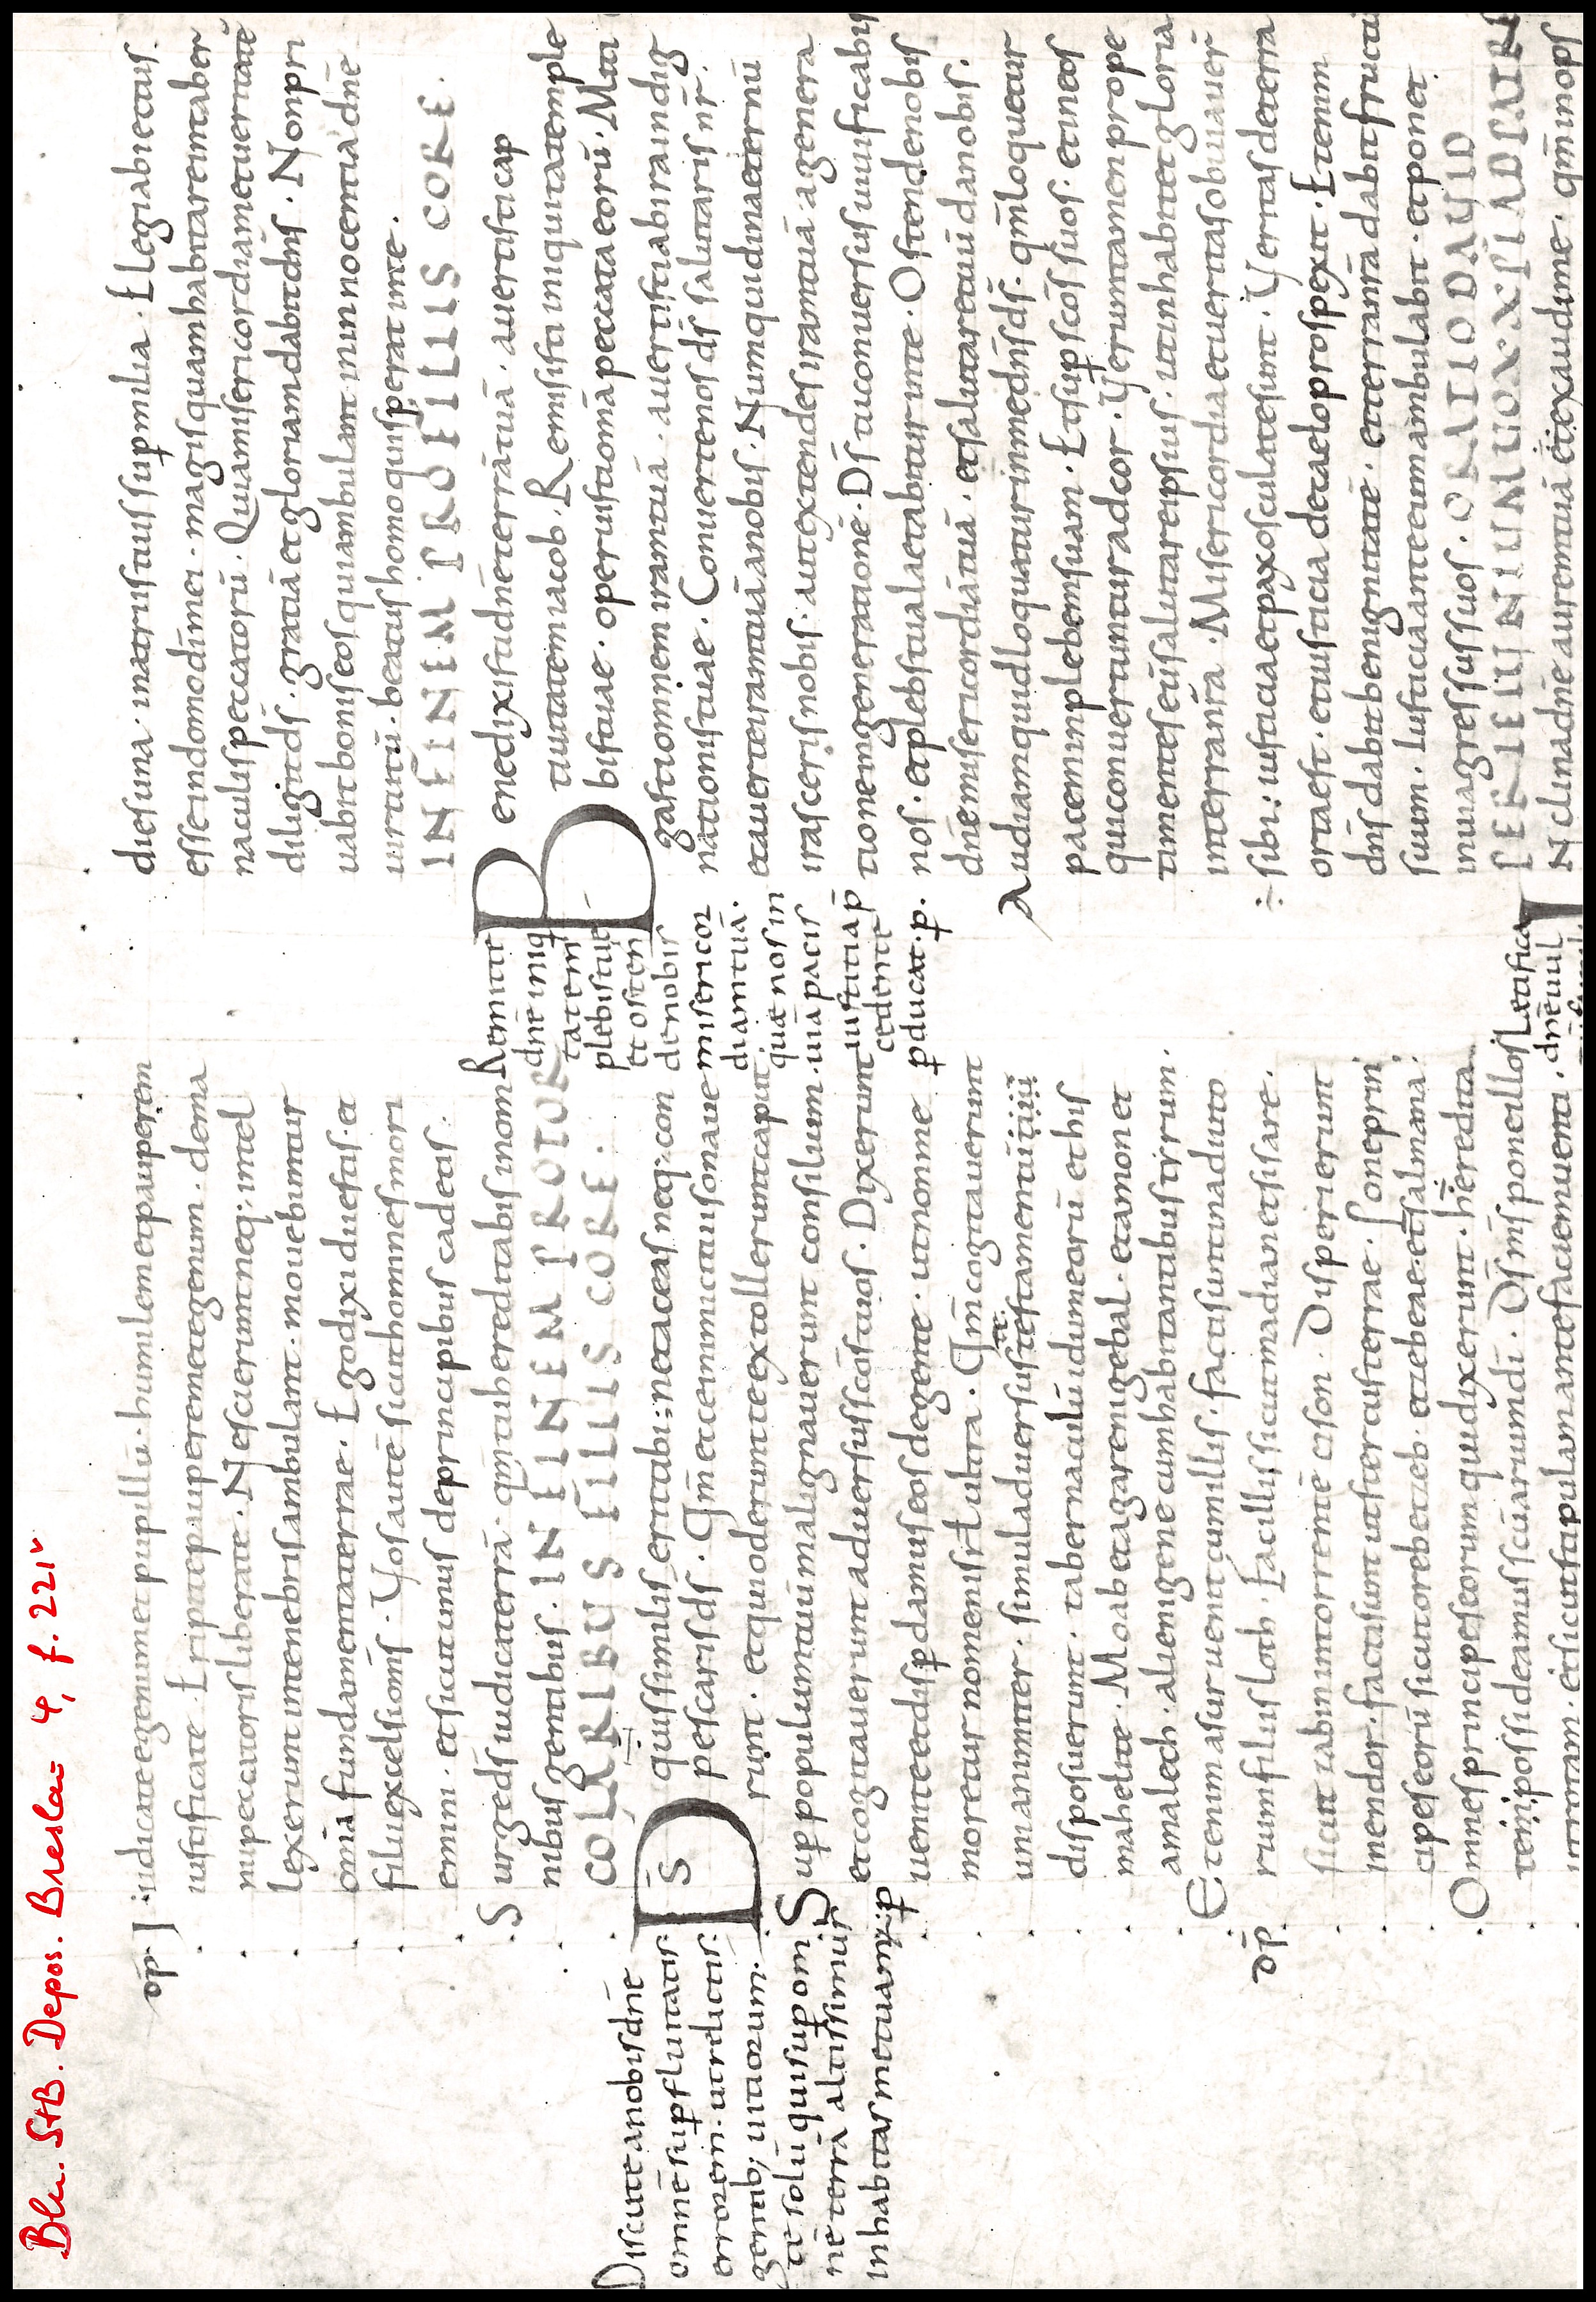 Bln. StB. Depos. Breslau 4, f. 221v
or̄p
iudicate egenum et pupillū · humilem et pauperem
iustificate · Eripite pauperem et egenum · de ma
nu peccatoris liberate · Nescierunt neq; intel
lexerunt in tenebris ambulant · mouebuntur
omīa fundamenta terrae · Ego dixi dii estis · et
filii excelsi omīs · Vos autē sicut homines mori
emini · et sicut unus de principibus cadetis ·
Surge d̄s iudica terrā · qm̄ tu hereditabis in om
nibus gentibus · IN FINEM PRO TOR
COLARIBUS FILIIS CORE ·
Ds̄ quis similis erit tibi · ne taceas neq; con
pescaris d̄s · Qm̄ ecce inimici tui sonaue
runt · et qui oderunt te extollerunt caput
Sup̱ populum tuū malignauerunt consilium ·
et cogitauerunt aduersus sc̄os tuos · Dixerunt
uenite et disp̱damus eos de gente · ut non me
moretur nomen isr̄l ultra · Qm̄ cogitauerunt
unanimiter · simul aduersus te testamentū
disposuerunt · tabernaculū idumeorū et his
mahelite · Moab et agareni gebal · et amon et
amalech · alienigene cum habitantibus tyrum ·
Etenim asur uenit cum illis · facti sunt in adiuto
rium filiis loth · Fac illis sicut madian et sisare ·
or̄p
sicut iabin in torrente cison · Disperierunt
in endor · facti sunt ut stercus terrae · Pone prin
cipes eorū sicut oreb et zeb · et zebeae et salmana ·
Omnes principes eorum qui dixerunt · hereditā
te possideamus sc̄uarium dī · Ds̄ ms̄ pone illos
ut rotam · et sicut stipulam ante faciem uenti ·
Discute a nobis dn̄e
omnē sup̱fluitatis
errorem · ut relictis
gentib; uitiorum ·
te solū qui sup̱ om
nē terrā altissimus
inhabitas metuam; p̱
Remitte
dn̄e iniq
tatem
plebis tuę
et osten
de nobis
misericor
diam tuā ·
quae nos in
uiā pacis
iustitia p̱
cedente
p̱ducat · p̱ ·
Laetifica
dn̄e iusl
dies una · in atriis tuis sup̱ milia · Elegi abiectus
esse in domo dī mei · magis quam habitare in taber
naculis peccatorū · Quia misericordia et ueritatē
diligit d̄s · gratiā et gloriam dabit dn̄s · Non pri
uabit bonis eos qui ambulant in innocentia dn̄e
uirtutū · beatus homo qui sperat in te ·
IN FINEM PRO FILIIS CORE ·
Benedixisti dn̄e terrā tuā · auertisti cap
tiuitatem iacob · Remisisti iniquitatem ple
bis tuae · operuisti omā peccata eorū · Miti
gasti omnem iram tuā · auertisti ab ira indig
nationis tuae · Conuerte nos d̄s salutaris nr̄ ·
et auerte iram tuā a nobis · Numquid in aeternū
irasceris nobis · aut extendes iram tuā a genera
tione in generationē · Ds̄ tu conuersus uiuificabis
nos · et plebs tua laetabitur in te · Ostende nobis
dn̄e misericordiā tuā · et salutare tuū da nobis ·
Audiam quid loquatur in me dn̄s d̄s · qm̄ loquetur
pacem in plebem suam · Et sup̱ sc̄os suos · et in eos
qui conuertuntur ad cor · Veruntamen prope
timentes eū salutare ipsius · ut inhabitet gloria
in terra nr̄a · Misericordia et ueritas obuiauer̄
sibi : iustitia et pax osculate sunt · Veritas de terra
orta est · et iusticia de caelo prospexit · Etenim
dn̄s dabit benignitatē · et terra nr̄a dabit fructū
suum · Iusticia ante eum ambulabit · et ponet
in uia gressus suos · ORATIO DAVID
Inclina dn̄e aurem tuā et exaudi me · qm̄ inops